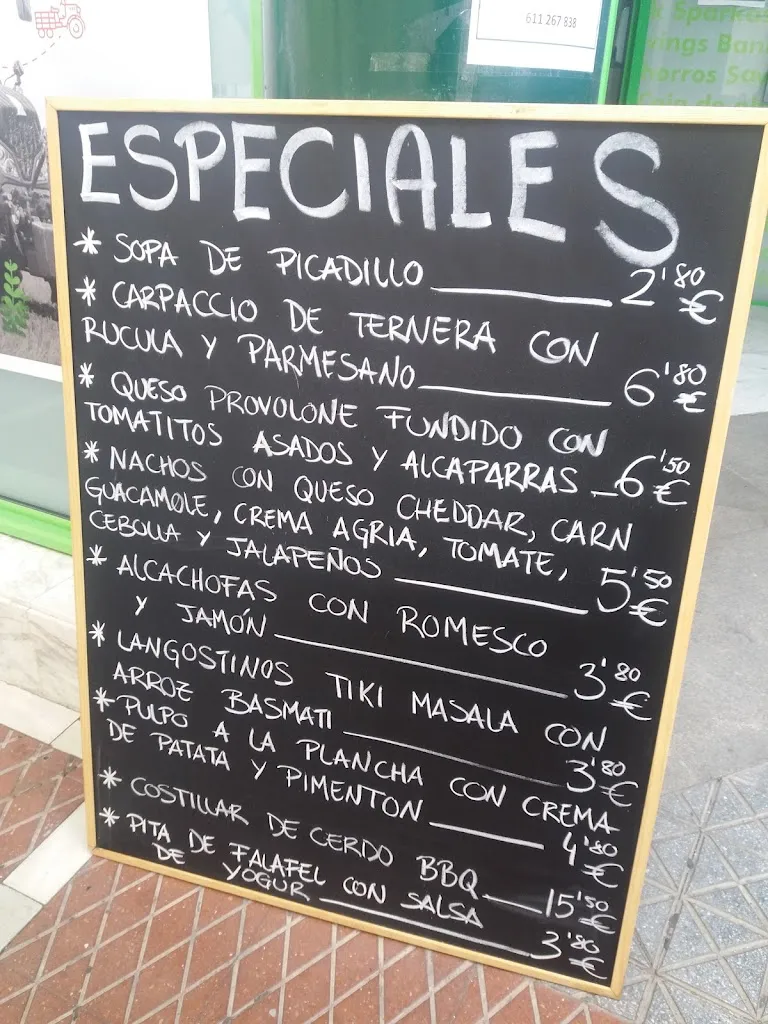 611 267 838
ESPECIALES
* SOPA DE PICADILLO 2'80 €
* CARPACCIO DE TERNERA CON
RUCULA Y PARMESANO 6'80 €
* QUESO PROVOLONE FUNDIDO CON
TOMATITOS ASADOS Y ALCAPARRAS 6'50 €
* NACHOS CON QUESO CHEDDAR, CARN
GUACAMOLE, CREMA AGRIA, TOMATE,
CEBOLLA Y JALAPEÑOS 5'50 €
* ALCACHOFAS CON ROMESCO
Y JAMÓN 3'80 €
* LANGOSTINOS TIKI MASALA CON
ARROZ BASMATI 3'80 €
* PULPO A LA PLANCHA CON CREMA
DE PATATA Y PIMENTON 4'80 €
* COSTILLAR DE CERDO BBQ 15'50 €
* PITA DE FALAFEL CON SALSA
DE YOGUR 3'80 €